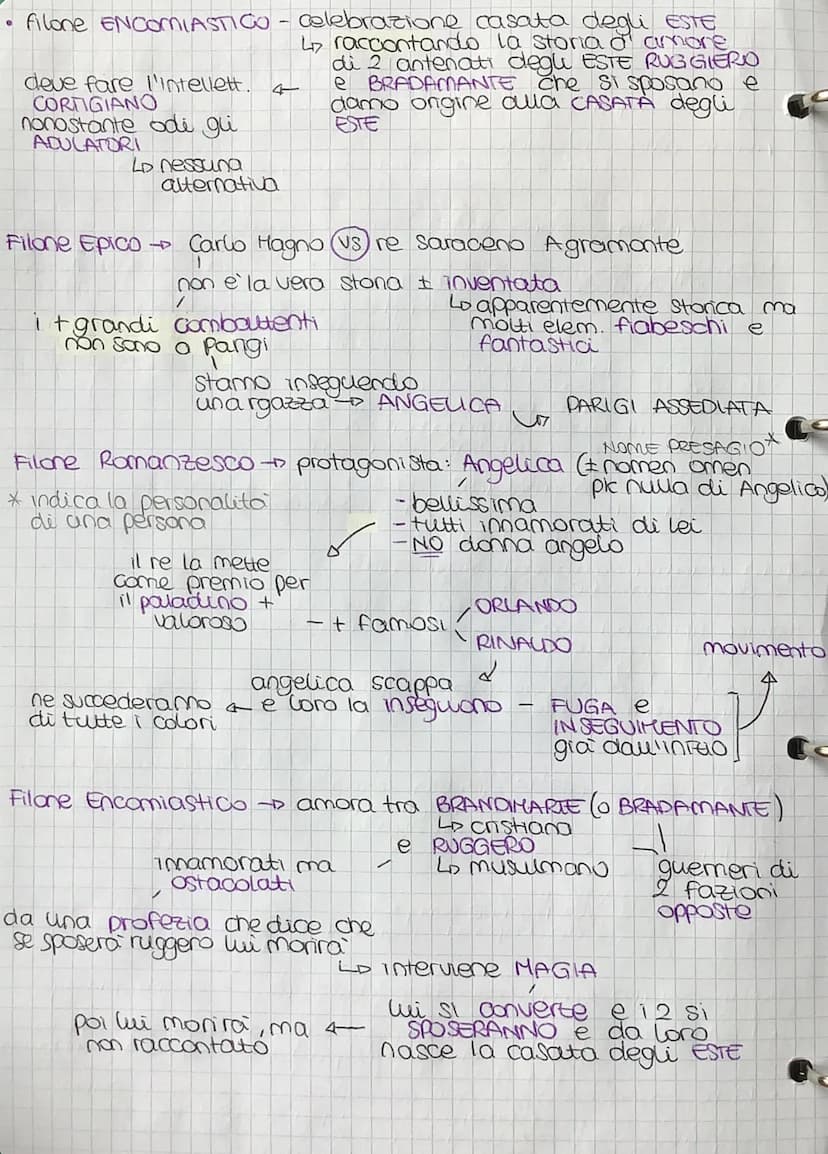 • filone ENCOMIASTICO - celebrazione casata degli ESTE
↳ raccontando la storia d'amore
di 2 antenati degli ESTE RUGGIERO
e BRADAMANTE che si sposano e
danno origine alla CASATA degli
ESTE
deve fare l'intellett. ←
CORTIGIANO
nonostante odi gli
ADULATORI
↳ nessuna
alternativa
Filone Epico → Carlo Magno VS re saraceno Agramante
non è la vera storia ± inventata
↳ apparentemente storica ma
molti elem. fiabeschi e
fantastici
i + grandi combattenti
non sono a Parigi
stanno inseguendo
una rgazza → ANGELICA
PARIGI ASSEDIATA
NOME PRESAGIO*
Filone Romanzesco → protagonista: Angelica (± nomen omen
pk nulla di Angelico)
* indica la personalità
di una persona
- bellissima
- tutti innamorati di lei
- NO donna angelo
il re la mette
come premio per
il paladino +
valoroso
- + famosi
ORLANDO
RINALDO
movimento
angelica scappa
ne succederanno ← e loro la inseguono - FUGA e
di tutte i colori
INSEGUIMENTO
già dall'INIZIO
Filone Encomiastico → amora tra BRANDIMARTE (o BRADAMANTE)
↳ cristiana
e RUGGERO
↳ musulmano
guerrieri di
2 fazioni
opposte
innamorati ma
ostacolati
da una profezia che dice che
se sposerà ruggero lui morirà
↳ interviene MAGIA
lui si converte e i 2 si
SPOSERANNO e da loro
nasce la casata degli ESTE
poi lui morirà, ma ←
non raccontato